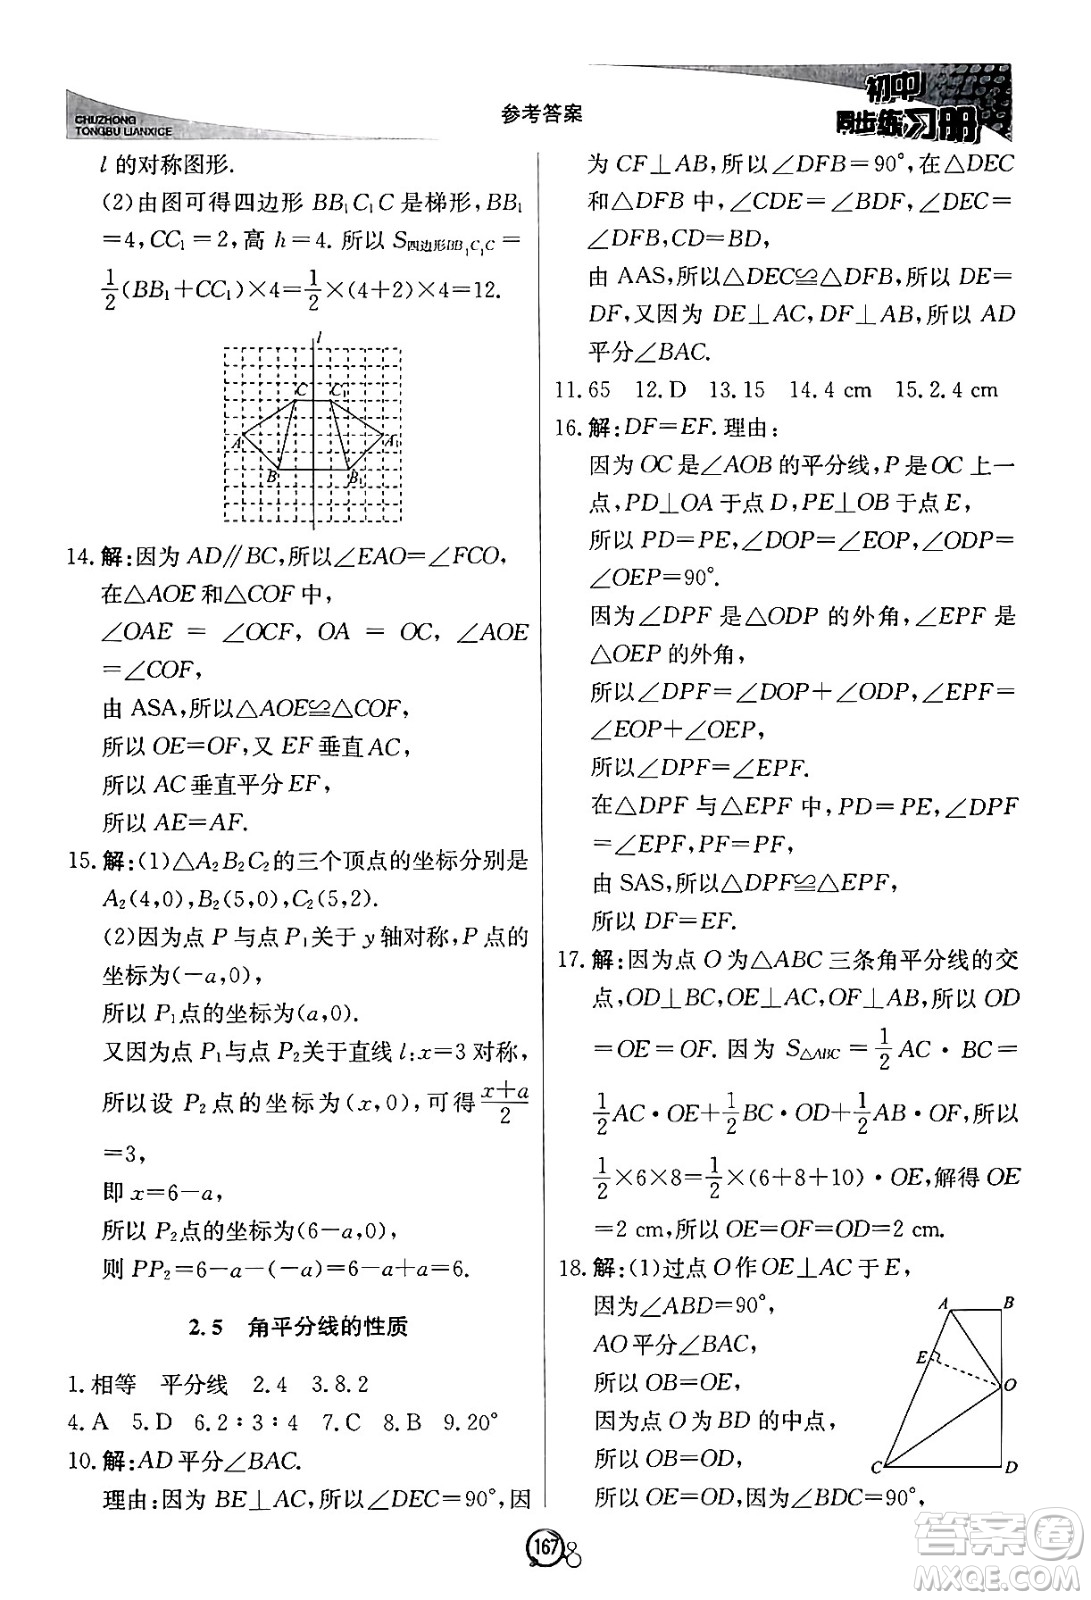 CHUZHONG
TONGBU LIANXICE
参考答案
初中
同步练习册
l 的对称图形.
(2)由图可得四边形 BB₁C₁C 是梯形,BB₁
=4,CC₁=2,高 h=4. 所以 S四边形BB₁C₁C=
1/2(BB₁+CC₁)×4=1/2×(4+2)×4=12.
l
C C₁
A A₁
B B₁
14.解:因为 AD∥BC,所以∠EAO=∠FCO,
在△AOE 和△COF 中,
∠OAE = ∠OCF, OA = OC, ∠AOE
=∠COF,
由 ASA,所以△AOE≌△COF,
所以 OE=OF,又 EF 垂直 AC,
所以 AC 垂直平分 EF,
所以 AE=AF.
15.解:(1)△A₂B₂C₂的三个顶点的坐标分别是
A₂(4,0),B₂(5,0),C₂(5,2).
(2)因为点 P 与点 P₁关于 y 轴对称,P 点的
坐标为(-a,0),
所以 P₁点的坐标为(a,0).
又因为点 P₁与点 P₂关于直线 l:x=3 对称,
所以设 P₂点的坐标为(x,0),可得(x+a)/2
=3,
即 x=6-a,
所以 P₂点的坐标为(6-a,0),
则 PP₂=6-a-(-a)=6-a+a=6.
2.5 角平分线的性质
1.相等 平分线 2.4 3.8.2
4.A 5.D 6.2∶3∶4 7.C 8.B 9.20°
10.解:AD 平分∠BAC.
理由:因为 BE⊥AC,所以∠DEC=90°,因
为 CF⊥AB,所以∠DFB=90°,在△DEC
和△DFB 中,∠CDE=∠BDF,∠DEC=
∠DFB,CD=BD,
由 AAS,所以△DEC≌△DFB,所以 DE=
DF,又因为 DE⊥AC,DF⊥AB,所以 AD
平分∠BAC.
11.65 12.D 13.15 14.4 cm 15.2.4 cm
16.解:DF=EF.理由:
因为 OC 是∠AOB 的平分线,P 是 OC 上一
点,PD⊥OA 于点 D,PE⊥OB 于点 E,
所以 PD=PE,∠DOP=∠EOP,∠ODP=
∠OEP=90°.
因为∠DPF 是△ODP 的外角,∠EPF 是
△OEP 的外角,
所以∠DPF=∠DOP+∠ODP,∠EPF=
∠EOP+∠OEP,
所以∠DPF=∠EPF.
在△DPF 与△EPF 中,PD=PE,∠DPF
=∠EPF,PF=PF,
由 SAS,所以△DPF≌△EPF,
所以 DF=EF.
17.解:因为点 O 为△ABC 三条角平分线的交
点,OD⊥BC,OE⊥AC,OF⊥AB,所以 OD
=OE=OF. 因为 S△ABC=1/2 AC·BC=
1/2 AC·OE+1/2 BC·OD+1/2 AB·OF,所以
1/2×6×8=1/2×(6+8+10)·OE,解得 OE
=2 cm,所以 OE=OF=OD=2 cm.
18.解:(1)过点 O 作 OE⊥AC 于 E,
因为∠ABD=90°,
AO 平分∠BAC,
所以 OB=OE,
因为点 O 为 BD 的中点,
所以 OB=OD,
所以 OE=OD,因为∠BDC=90°,
A B
E
O
C D
167
答案卷